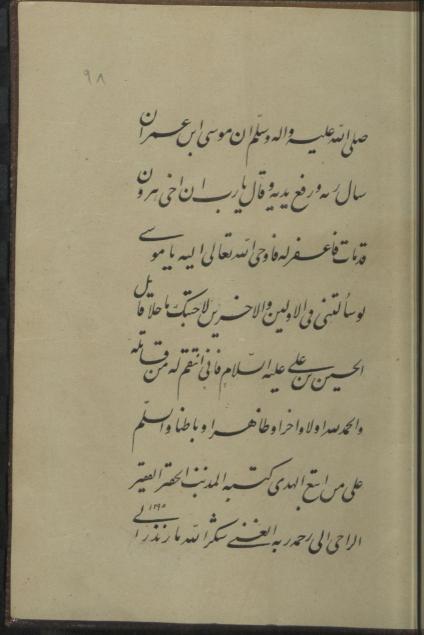 ۹۸
صلی الله علیه واله وسلم ان موسی ابن عمران
سال ربه ورفع یدیه وقال یارب ان اخی هرون
قدمات فاغفر له فاوحی الله تعالی الیه یاموسی
لوسألتنی فی الاولین والاخرین لاجبتک ماخلا قاتل
الحسین بن علی علیه السلام فانی انتقم له من قاتله
والحمدلله اولا واخرا وظاهرا وباطنا والسلم
علی من اتبع الهدی کتبه المذنب الحقر الفقیر
الراجی الی رحمه ربه الغنی شکرالله مازندرانی ۱۲۹۵